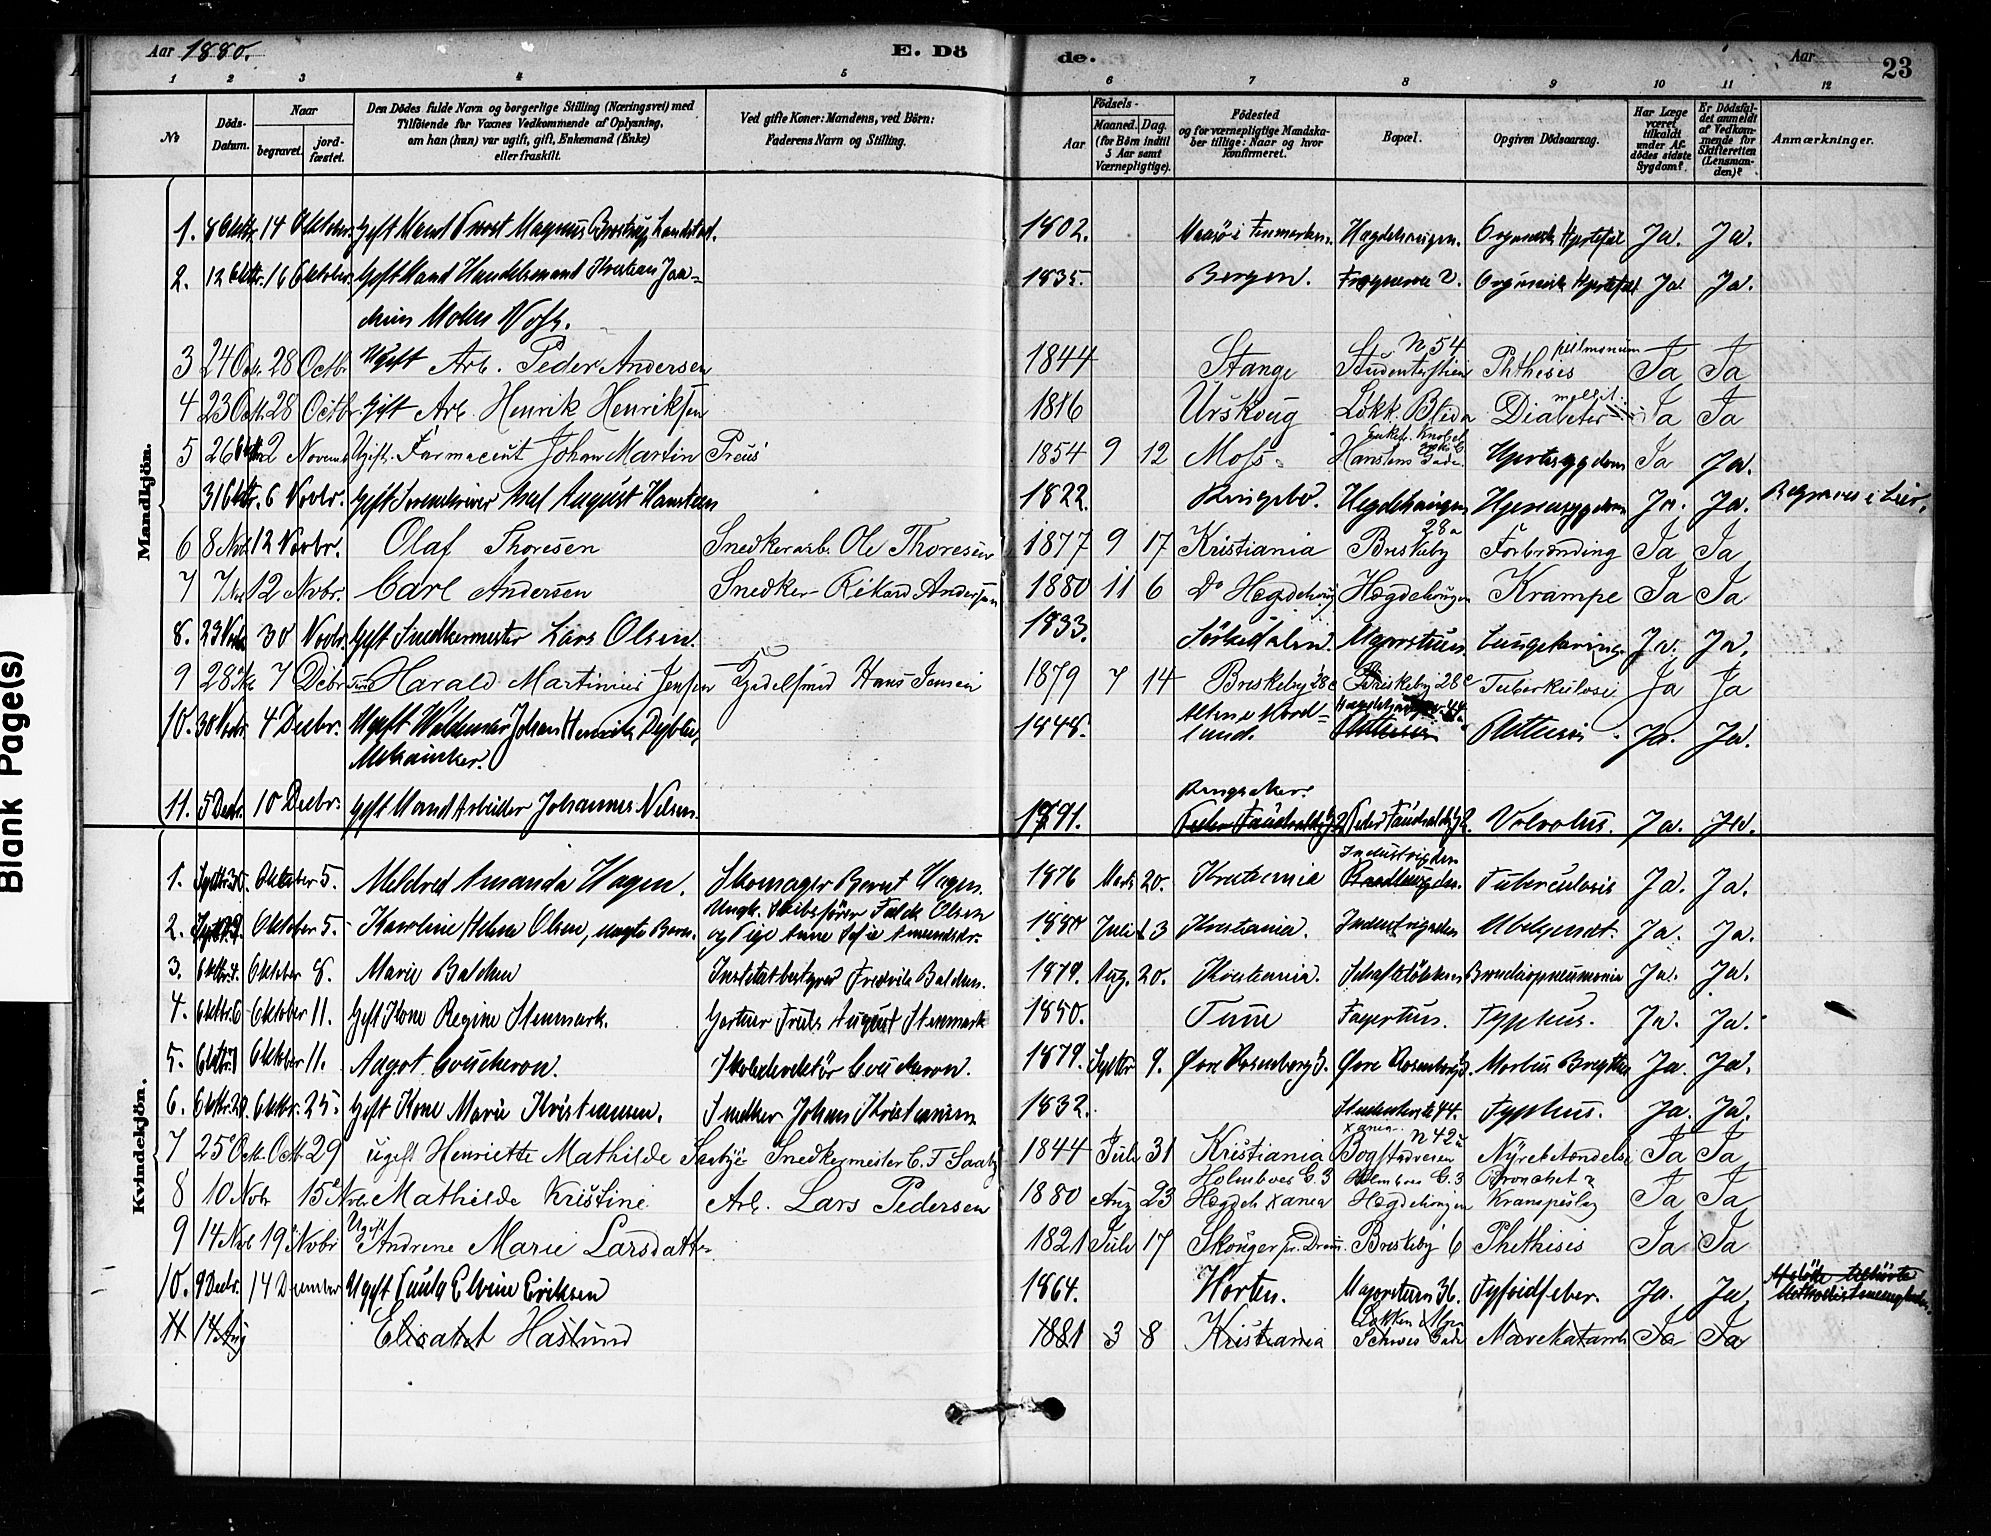 Aar 1880. E. Döde. Aar 23
1 2 3 4 5 6 7 8 9 10 11 12
No
Döds-Datum.
Naar begravet. jordfæstet.
Den Dödes fulde Navn og borgerlige Stilling (Næringsvei) med Tilföiende for Voxnes Vedkommende af Oplysning, om han (hun) var ugift, gift, Enkemand (Enke) eller fraskilt.
Ved gifte Koner: Mandens, ved Börn: Faderens Navn og Stilling.
Födsels-
Aar Maaned. Dag. (for Börn indtil 5 Aar samt Værnepligtige).
Födested og for værnepligtige Mandskaber tillige: Naar og hvor konfirmeret.
Bopæl.
Opgiven Dödsaarsag.
Har Læge været tilkaldt under Afdödes sidste Sygdom?
Er Dödsfaldet anmeldt af Vedkommende for Skifteretten (Lensmanden)?
Anmærkninger.
Mandkjön.
1. 8 Oktbr. 14 Oktober. Gift Mand Provst Magnus Brostrup Landstad. 1802. Maasö i Finmarken. Hægdehaugen. Organisk Hjertefeil Ja. Ja.
2. 12 Oktbr. 16 Oktober. Gift Mand Handelsmand Kristian Joachim Mohn Vogt. 1835. Bergen. Organisk Hjertefeil Ja. Ja.
3 24 Octb. 28 Octbr Ugift Arb. Peder Andersen 1844 Stange N 54 Studenterstien Phthisis pulmonum Ja Ja
4 23 Oct. 28 Octbr. Gift Arb. Henrik Henriksen 1816 Urskoug Lökk. Diabetes mellit. Ja Ja
5 26 Oktb 2 Novemb Ugift. Farmaceut Johan Martin Preus 1854 9 12 Moss Hanstens Gade. Hjertesygdom Ja Ja.
31 Oktbr. 6 Novbr. Gift Sorenskriver Axel August Hansteen 1822. Ringebo. Hegdehaugen Hjernesygdom Ja. Ja. Begraves i Lier.
6 8 Nov. 12 Novbr. Olaf Thoresen Snedkerarb. Ole Thoresen 1877 9 17 Kristiania Briskeby 28a Forbrænding Ja Ja
7 7 Nov 12 Novbr. Carl Andersen Snedker Rikard Andersen 1880 11 6 Do Hægdehoug Hægdehougen Krampe Ja Ja
8. 23 Novbr 30 Novbr. Gift Snedkermester Lars Olsen. 1833. Sörkedalen. Majorstuen. Ja. Ja.
9 28 Nov 7 Debr Harald Martinius Jensen Hans Jensen 1879 7 14 Briskeby 28c Briskeby 28c Tuberkulose Ja Ja
10. 30 Novbr. 4 Decbr. Ugift Waldemar Johan Henrik Mekaniker. 1848. Alten i Nordland. Phthisis Ja. Ja.
11. 5 Decbr. 10 Decbr. Gift Mand Arbeider Johannes Nilsen. Ringsaker. Volvolus. Ja. Ja.
Kvindekjön.
1. Septbr. 30. Oktober 5. Meldred Amanda Hagen. Skomager Bernt Hagen. 1876 Marts 20. Kristiania Industrigaden Tuberculosis Ja. Ja.
2. Oktober 5. Karoline Helene Olsen, uægte Barn. Ungk. Skibsförer Falck Olsen og Pige Anne Sofie Amundsdr. 1880 Juli 13 Kristiania. Industrigaden Ubekjendt. Ja. Ja.
3. Oktbr. 4. Oktober 8. Marie Balchen Institutbestyrer Fredrik Balchen. 1879. Aug. 20. Kristiania. Schafteslökken Bronchopneumonia Ja. Ja.
4. Oktbr 6 Oktober 11. Gift Kone Regine Stenmark. Gartner Frits August Stenmark 1850. Tune Fagertun. Typhus. Ja. Ja.
5. Oktbr 7 Oktober 11. Aagot Coucheron. Skoledirektör Coucheron. 1879. Septbr 9. Övre Rosenborg 3. Övre Rosenborg 3. Morbus Brigthi Ja. Ja.
6. Oktbr. 20. Oktbr. 25. Gift Kone Marie Kristiansen. Snedker Johan Kristiansen 1832. Studenterste 44. Typhus. Ja. Ja.
7 25 Oct. Oct. 29 ugift Henriette Mathilde Saabye Snedkermester C. F. Saaby 1844 Juli 31 Kristiania Bogstadveien N 42a Nyrebetændelse Ja Ja
8 10 Nobr 15 Nov. Mathilde Kristine Arb. Lars Pedersen 1880 Aug 23 Holmboes G. 3 Hægdeh Xania Holmboes G. 3 Hægdehougen Bronchit & Krampeslag Ja Ja
9 14 Nov 19 Novbr Ugift Andrine Marie Larsdatter 1821 Juli 17 Skouger pr. Dram. Briskeby 6 Phthisis Ja Ja
10. 9 Decbr. 14 December Ugift Paula Elvine Eriksen 1864. Horten. Majorstuen 36. Tyfoidfeber. Ja. Ja. Afdöde tilhörte Methodistmenigheden.
11 14 Aug Elisabet Haslund 1881 3 8 Kristiania Lökken Schives Gade Mavekatarrh Ja Ja
Blank Page(s)